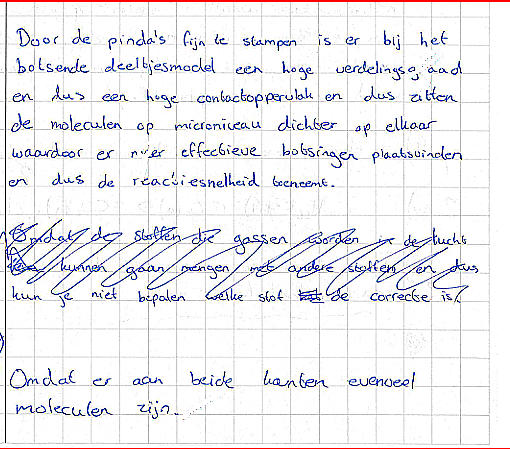 Door de pinda's fijn te stampen is er bij het
botsende deeltjesmodel een hoge verdelingsgraad
en dus een hoge contactoppervlak en dus zitten
de moleculen op microniveau dichter op elkaar
waardoor er meer effectieve botsingen plaatsvinden
en dus de reactiesnelheid toeneemt.
Omdat de stoffen die gassen worden in de lucht
kunnen gaan mengen met andere stoffen en dus
kun je niet bepalen welke stof de correcte is.
Omdat er aan beide kanten evenveel
moleculen zijn.